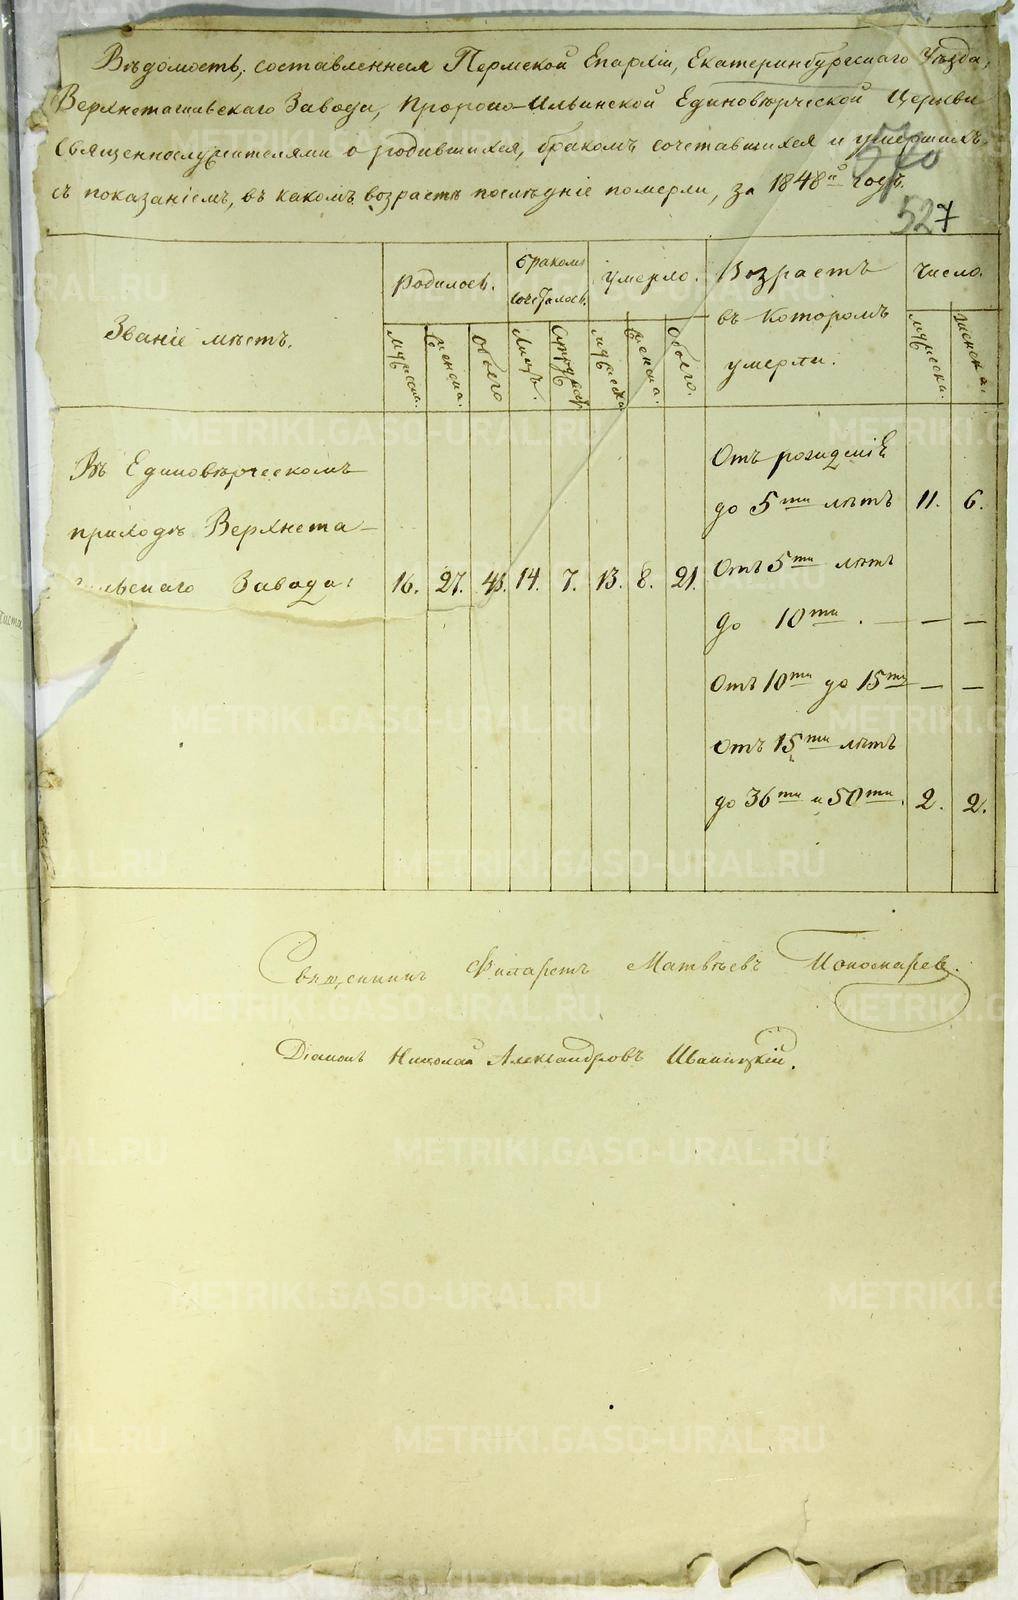 Вѣдомость, составленная Пермской Епархіи, Екатеринбургскаго Уѣзда,
Верхнетагильскаго Завода, Пророко-Ильинской Единовѣрческой Церкви
Священнослужителями о родившихся, бракомъ сочетавшихся и умершихъ,
съ показаніемъ, въ какомъ возрастѣ послѣдніе померли, за 1848й годъ.
527
Званіе мѣстъ.
Родилось.
бракомъ сочеталось.
умерло.
Возрастъ въ которомъ умерли.
Число.
мужеска.
женска.
обоего
Лицъ.
Супружествъ
мужеска
женска.
обоего.
мужеска.
женска.
Въ Единовѣрческомъ
приходѣ Верхнета-
гильскаго Завода:
16. 27. 43. 14. 7. 13. 8. 21.
Отъ рожденія
до 5ти лѣтъ 11. 6.
Отъ 5ти лѣтъ
до 10ти. — —
Отъ 10ти до 15ти — —
Отъ 15ти лѣтъ
до 36ти и 50ти. 2. 2.
Священникъ Филаретъ Матвѣевъ Пономаревъ.
Діаконъ Николай Александровъ Иваницкій.
METRIKI.GASO-URAL.RU